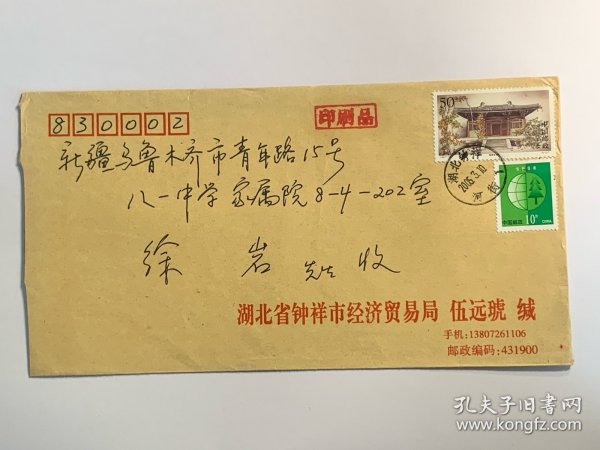 830002
印刷品
新疆乌鲁木齐市青年路15号
八一中学家属院8-4-202室
徐岩 先生 收
50
中国邮政
10分
CHINA
湖北钟祥
2005.3.10
湖北省钟祥市经济贸易局 伍远琥 缄
手机:13807261106
邮政编码:431900
孔夫子旧书网
www.kongfz.com